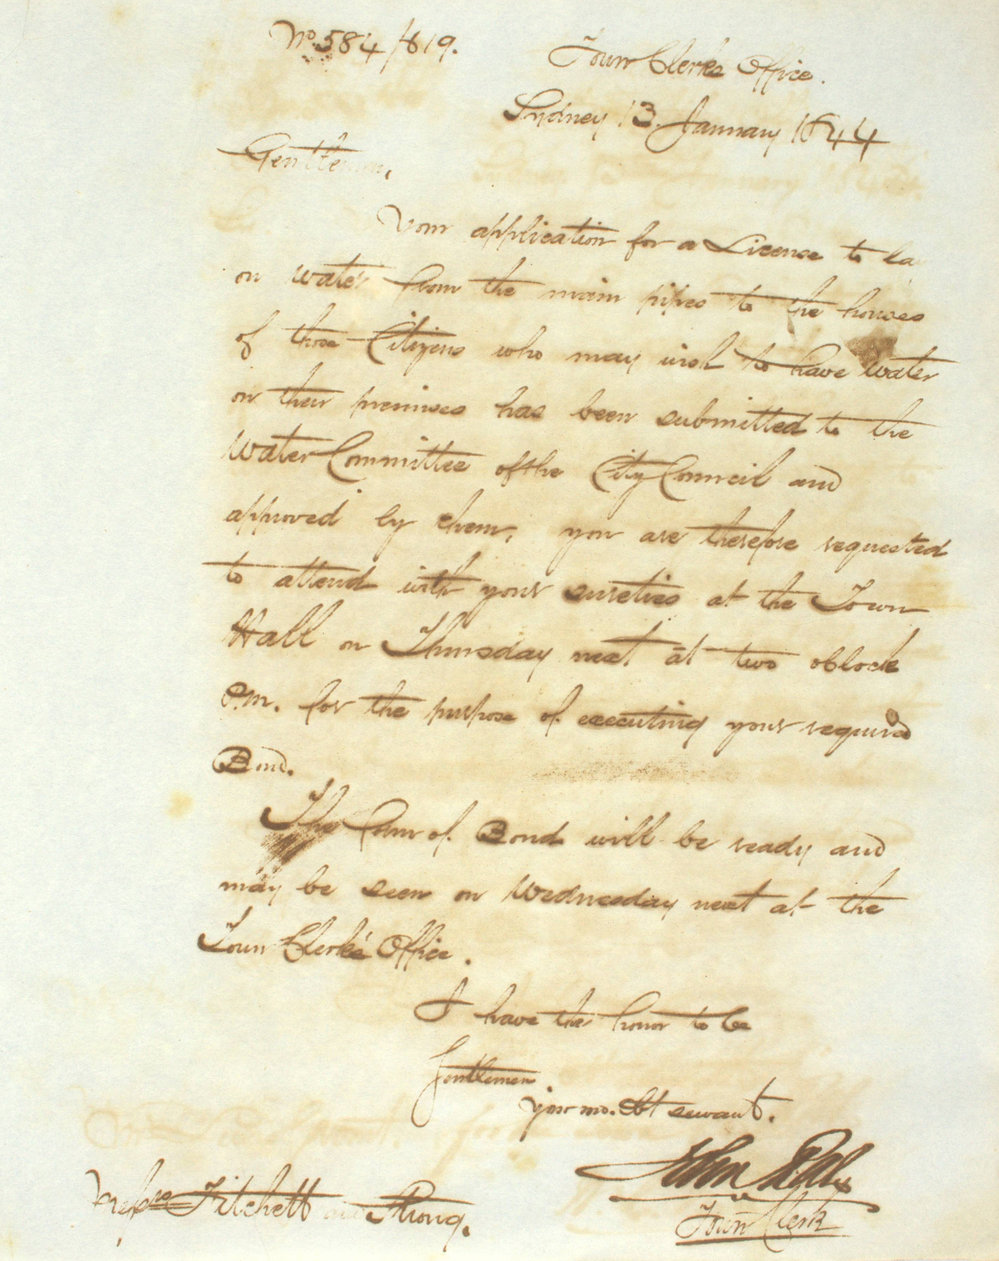 No. 584/819.
Town Clerks Office.
Sydney 13 January 1844
Gentlemen,
Your application for a License to la
on water from the main pipes to the houses
of those Citizens who may wish to have water
on their premises has been submitted to the
Water Committee of the City Council and
approved by them, you are therefore requested
to attend with your sureties at the Town
Hall on Thursday next at two oClock
P.M. for the purpose of executing your required
Bond.
The form of Bond will be ready and
may be seen on Wednesday next at the
Town Clerk's Office.
I have the honor to be
Gentlemen
your mo. Obt servant.
John
Town Clerk
Messrs Fitchett and Strong.